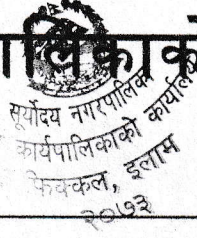 ालिकाको
सूर्योदय नगरपालिका
कार्यपालिकाको कार्यालय
फिक्कल, इलाम
२०७३